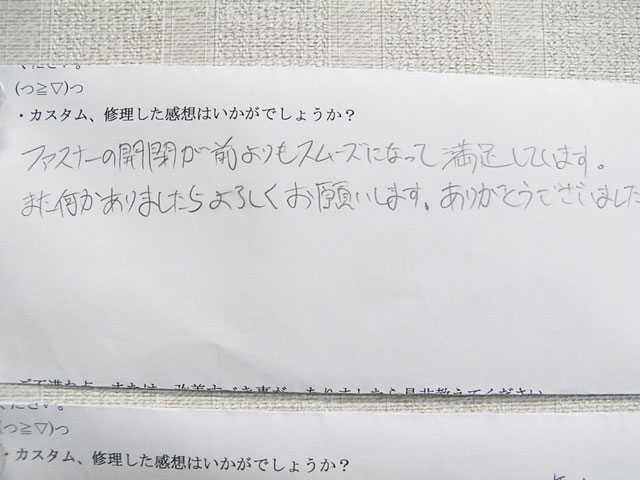 ください。
(つ≧▽)つ
・カスタム、修理した感想はいかがでしょうか？
ファスナーの開閉が前よりもスムーズになって満足しています。
また何かありましたらよろしくお願いします。ありがとうございました
ください。
(つ≧▽)つ
・カスタム、修理した感想はいかがでしょうか？